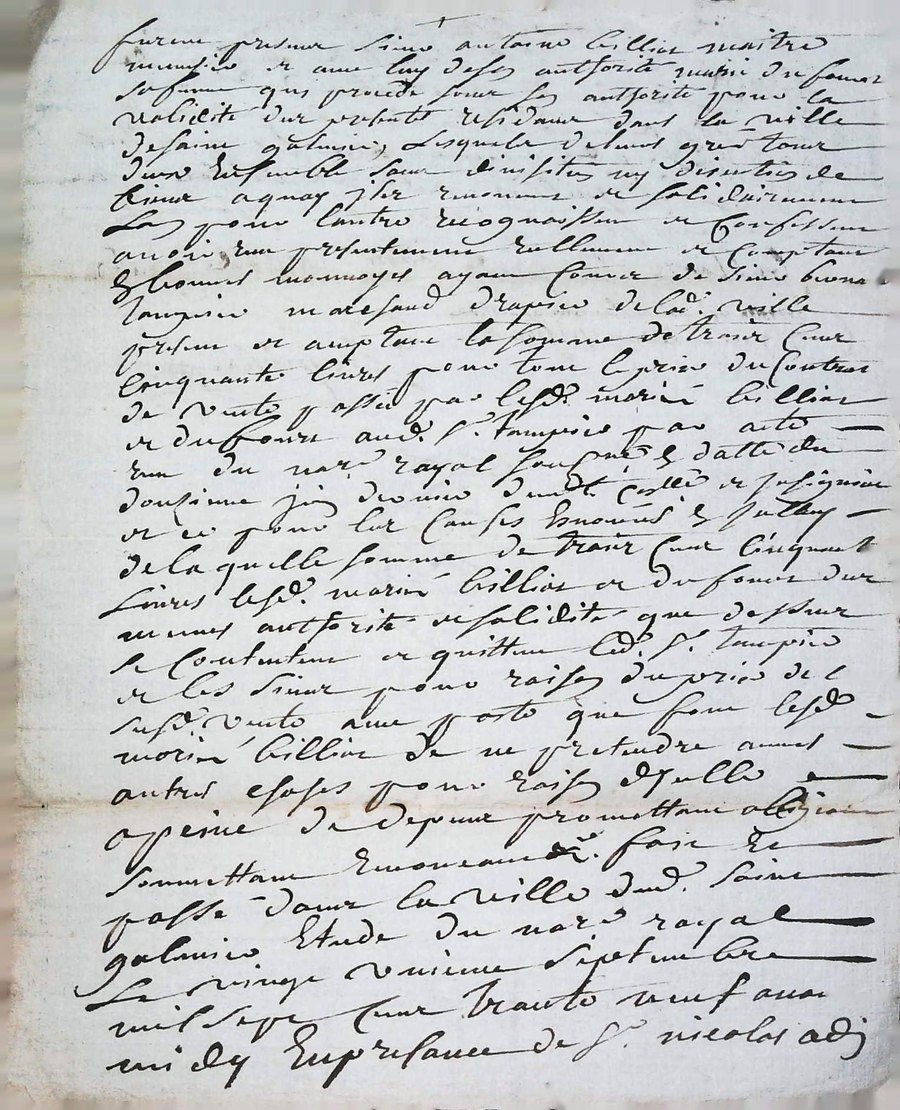 furent presens sieur antoine billiar maitre
menusier et avec luy de son authorité marie dufour
sa femme qui procede sous son authorité pour la
validité des presentes residans dans la ville
de saint galmier, lesquels de leurs grés tous
deux ensemble sans division ny discution de
biens aquoy ils renoncent et solidairement
l'un pour l'autre recognaissent et confessent
avoir eu presentement reellement et comptant
en bonnes monnoyes ayant cours de sieur
tampier marchand drapier de lad. ville
present et acceptant la somme de trois cens
cinquante livres pour tout le prix du contrat
de vente passé par lesd. mariés billiar
et dufour aud. sr. tampier par acte
receu du nore. royal soussigné en datte du
douzieme juin dernier deuedt. collé et insignué
et ce pour les causes enoncées en icelluy
de laquelle somme de trois cens cinquante
livres lesd. mariés billiar et dufour des
memes authorité et solidité que dessus
se contentent et quittent led. sr. tampier
et les siens pour raison du prix de l
susd. vente avec pacte que font lesd.
mariés billiar de ne pretendre aucunes
autres choses pour raison d'icelle
a peine de depens promettant obligeant
soumettant renonceant &c. fait et
passé dans la ville dud. saint
galmier etude du nore. royal
le vingt unieme septembre
mil sept cens trante neuf avant
midy en presance de sr. nicolas